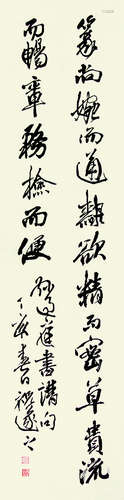 篆尚婉而通隸欲精而密草貴流
而暢章務檢而便
孫過庭書譜句
丁亥春日祝遂之